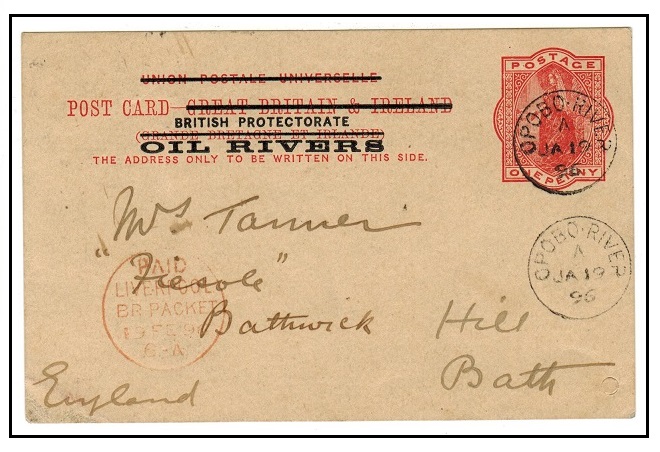 UNION POSTALE UNIVERSELLE
POST CARD GREAT BRITAIN & IRELAND
BRITISH PROTECTORATE
(GRANDE BRETAGNE ET IRLANDE)
OIL RIVERS
THE ADDRESS ONLY TO BE WRITTEN ON THIS SIDE.
POSTAGE
ONE PENNY
OPOBO·RIVER
A
JA 19
96
Mrs Tanner
"Fiesole"
Bathwick Hill
Bath
England
OPOBO·RIVER
A
JA 19
96
PAID
LIVERPOOL
BR PACKET
FE 96